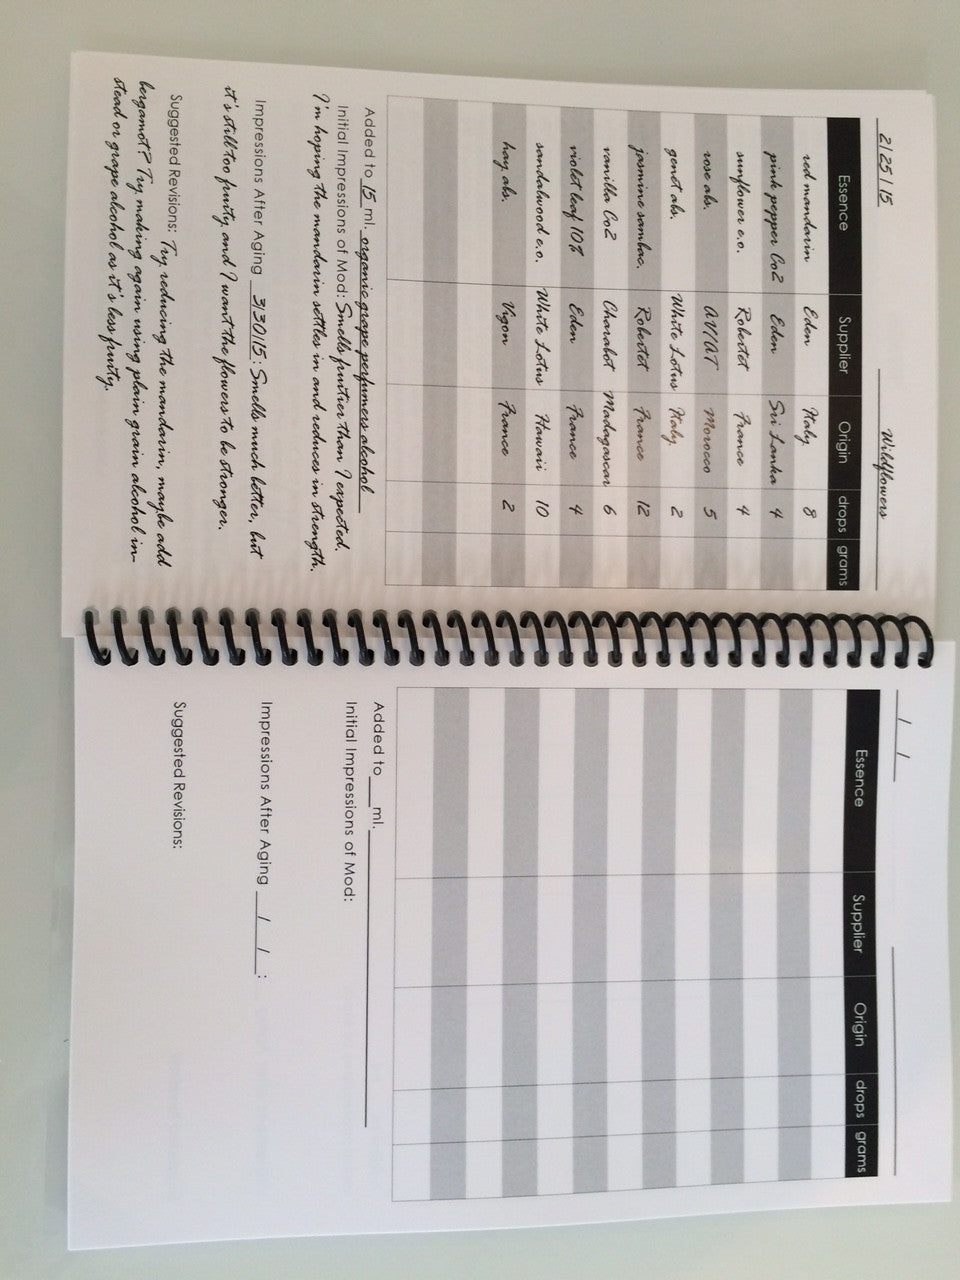 2/25/15 Wildflowers
Essence Supplier Origin drops grams
red mandarin Eden Italy 8
pink pepper Co2 Eden Sri Lanka 4
sunflower e.o. Robertet France 4
rose abs. AVIAT Morocco 5
genet abs. White Lotus Italy 2
jasmine sambac. Robertet France 12
vanilla Co2 Charabot Madagascar 6
violet leaf 10% Eden France 4
sandalwood e.o. White Lotus Hawaii 10
hay abs. Vigon France 2
Added to 15 ml. organic grape perfumers alcohol
Initial Impressions of Mod: Smells fruitier than I expected.
I'm hoping the mandarin settles in and reduces in strength.
Impressions After Aging 3/30/15: Smells much better, but
it's still too fruity and I want the flowers to be stronger.
Suggested Revisions: Try reducing the mandarin, maybe add
bergamot? Try making again using plain grain alcohol in-
stead or grape alcohol as it's less fruity.
/ /
Essence Supplier Origin drops grams
Added to ml.
Initial Impressions of Mod:
Impressions After Aging / / :
Suggested Revisions: